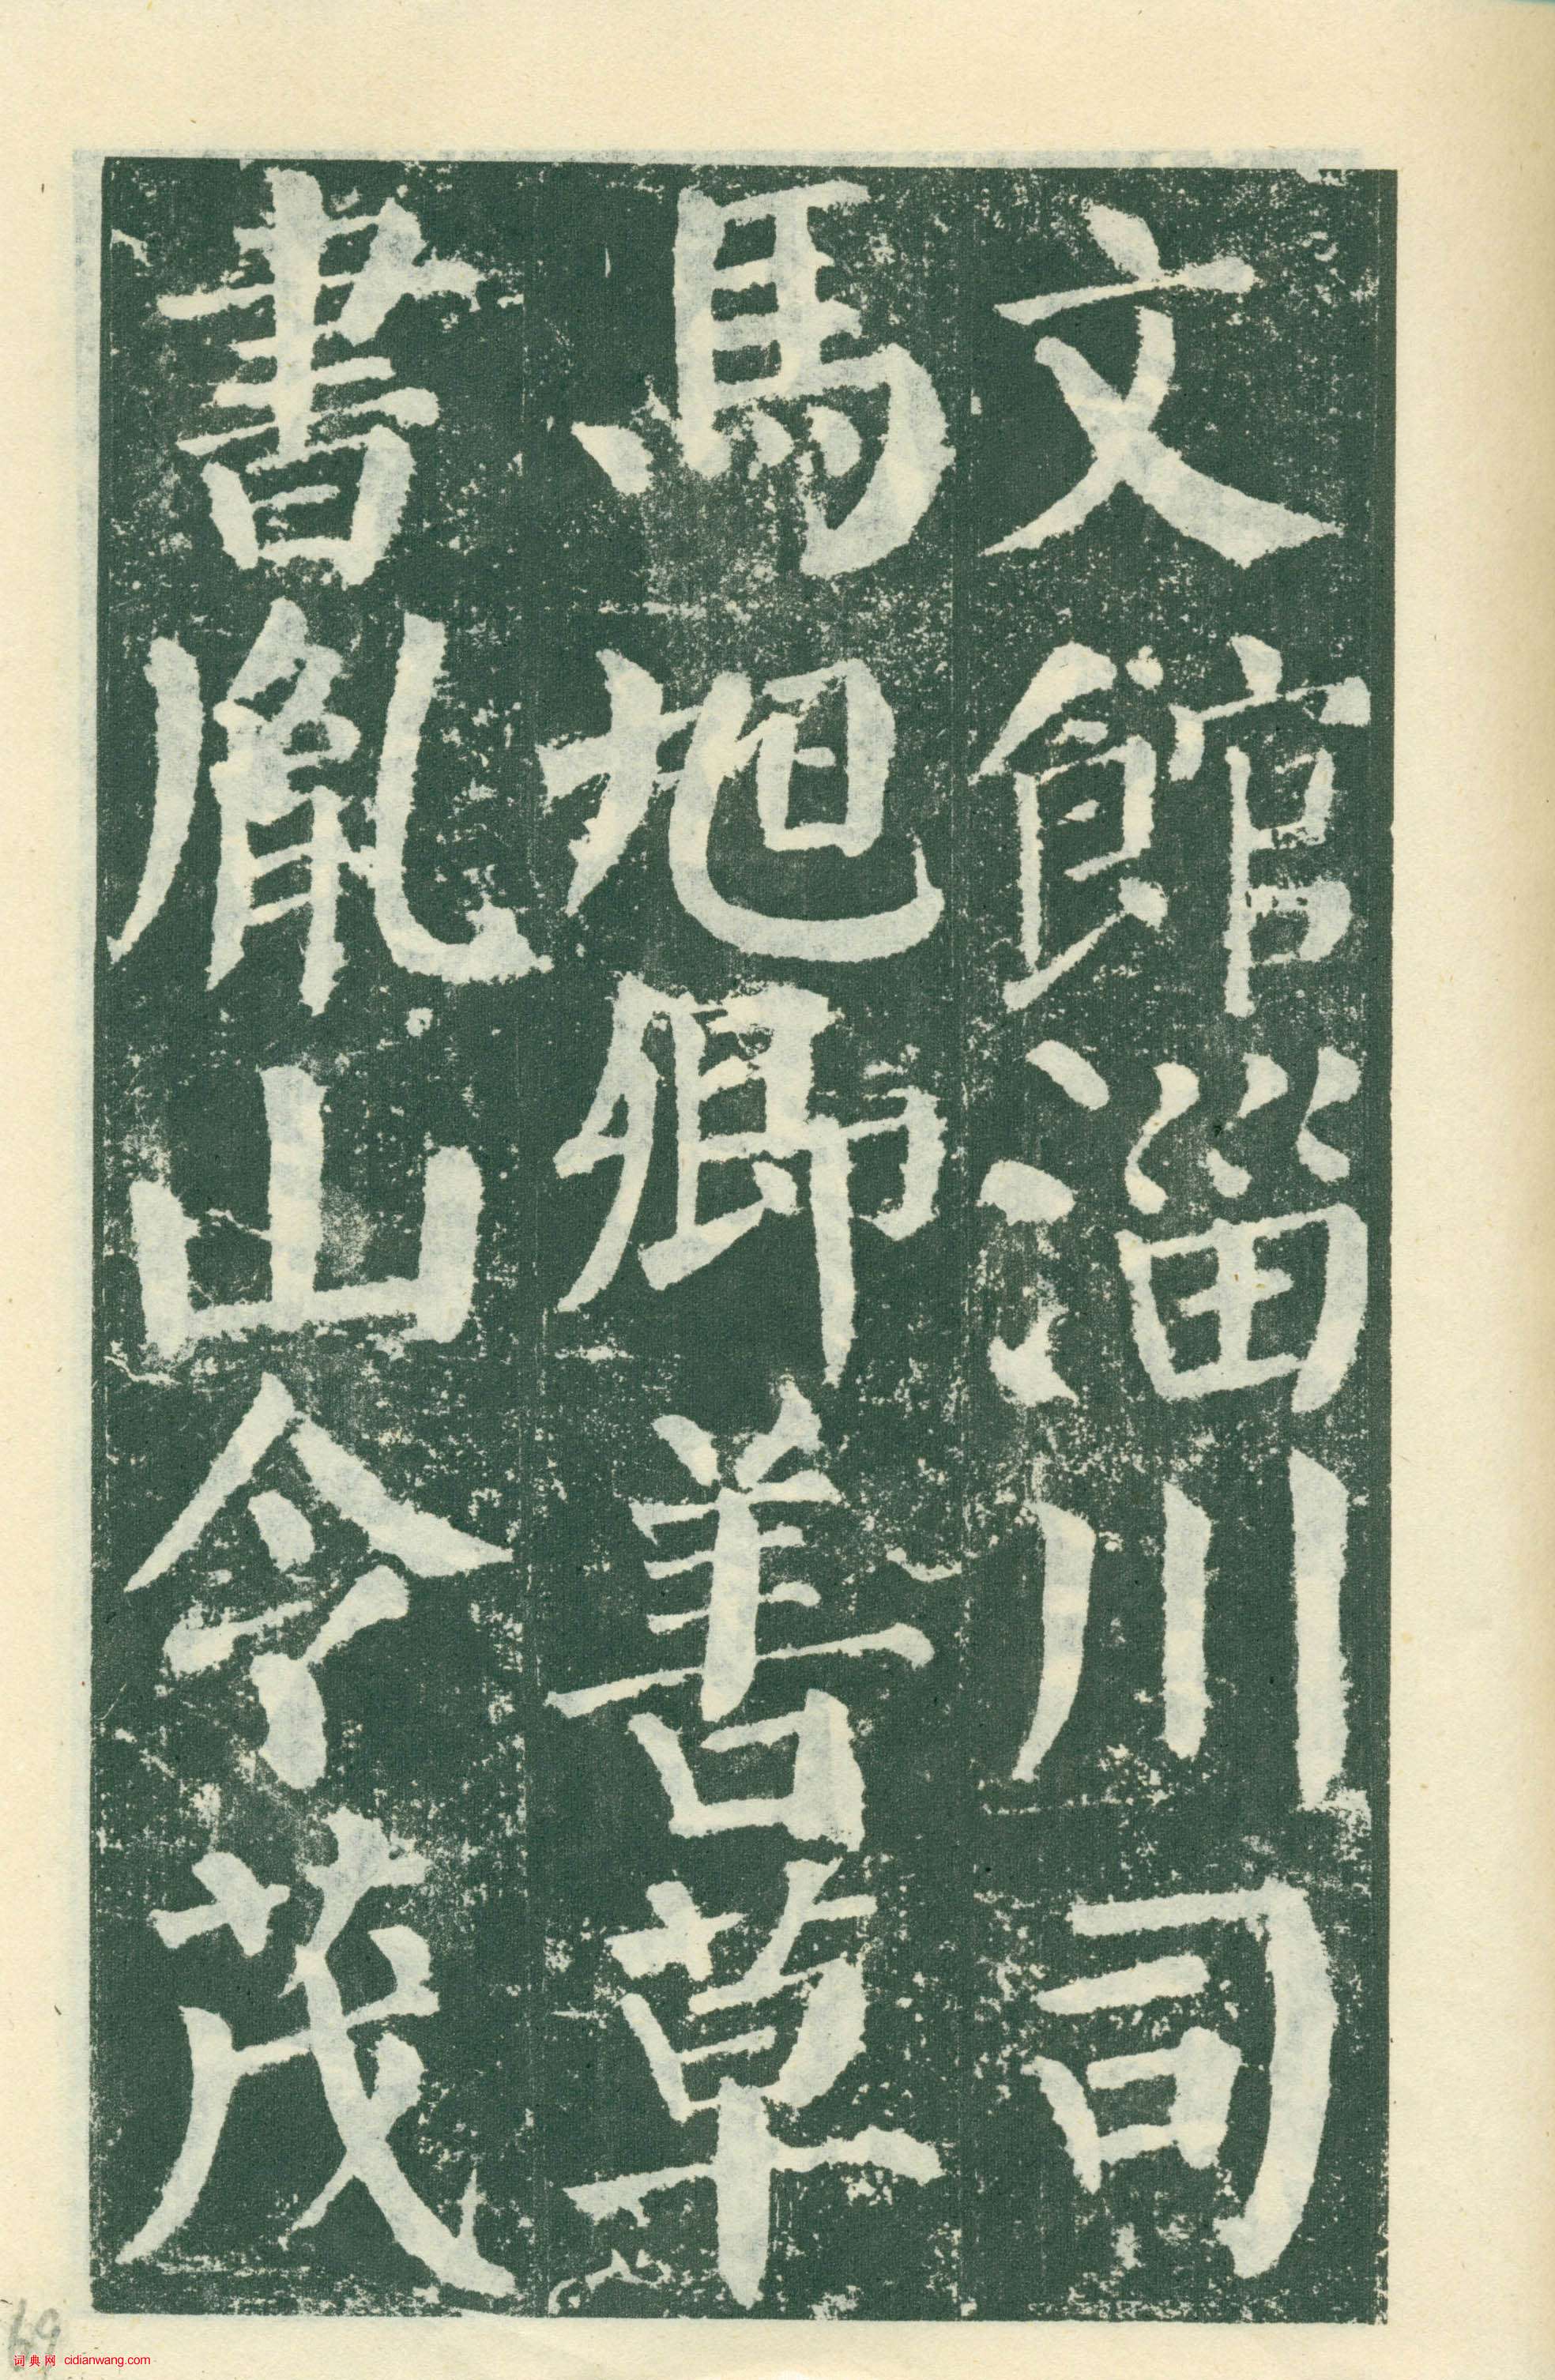 文館淄川司
馬旭卿善草
書胤山令茂
69
词典网 cidianwang.com